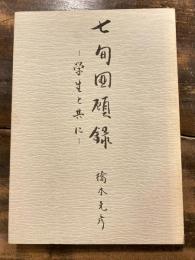 七旬回顧録
－学生と共に－
橋本克彦